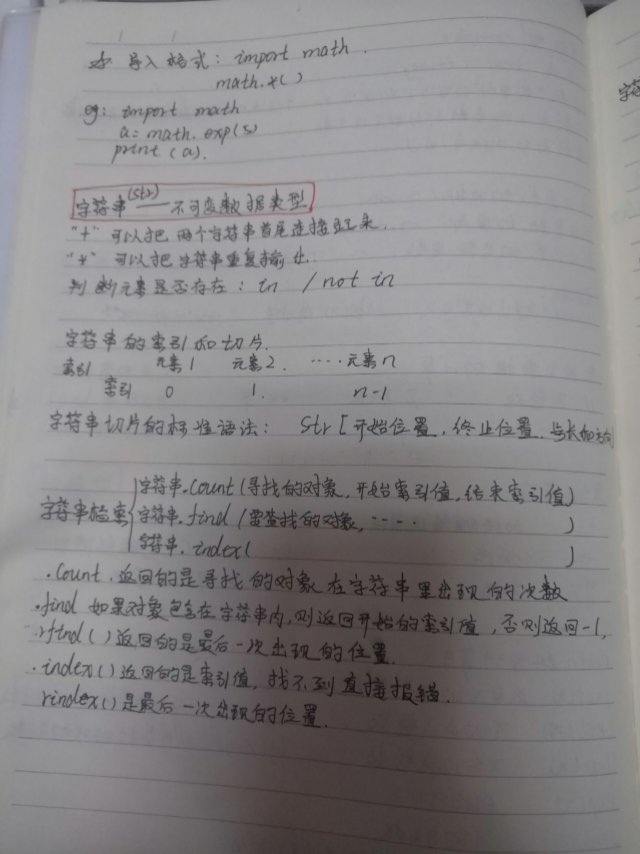 导入格式：import math.
math.*()
eg: import math
a = math.exp(5)
print (a).
字符串(str)——不可变数据类型
"+" 可以把两个字符串首尾连接起来.
"*" 可以把字符串重复输出.
判断元素是否存在：in / not in
字符串的索引和切片.
索引 元素1 元素2 ···· 元素n
索引 0 1. n-1
字符串切片的标准语法： Str [开始位置, 终止位置, 步长和方向
字符串检索
字符串.count (寻找的对象, 开始索引值, 结束索引值)
字符串.find (需查找的对象, ···· )
字符串.index( )
.count. 返回的是寻找的对象在字符串里出现的次数
.find 如果对象包含在字符串内, 则返回开始的索引值, 否则返回-1,
.rfind() 返回的是最后一次出现的位置.
.index() 返回的是索引值, 找不到直接报错.
rindex() 是最后一次出现的位置.
字符